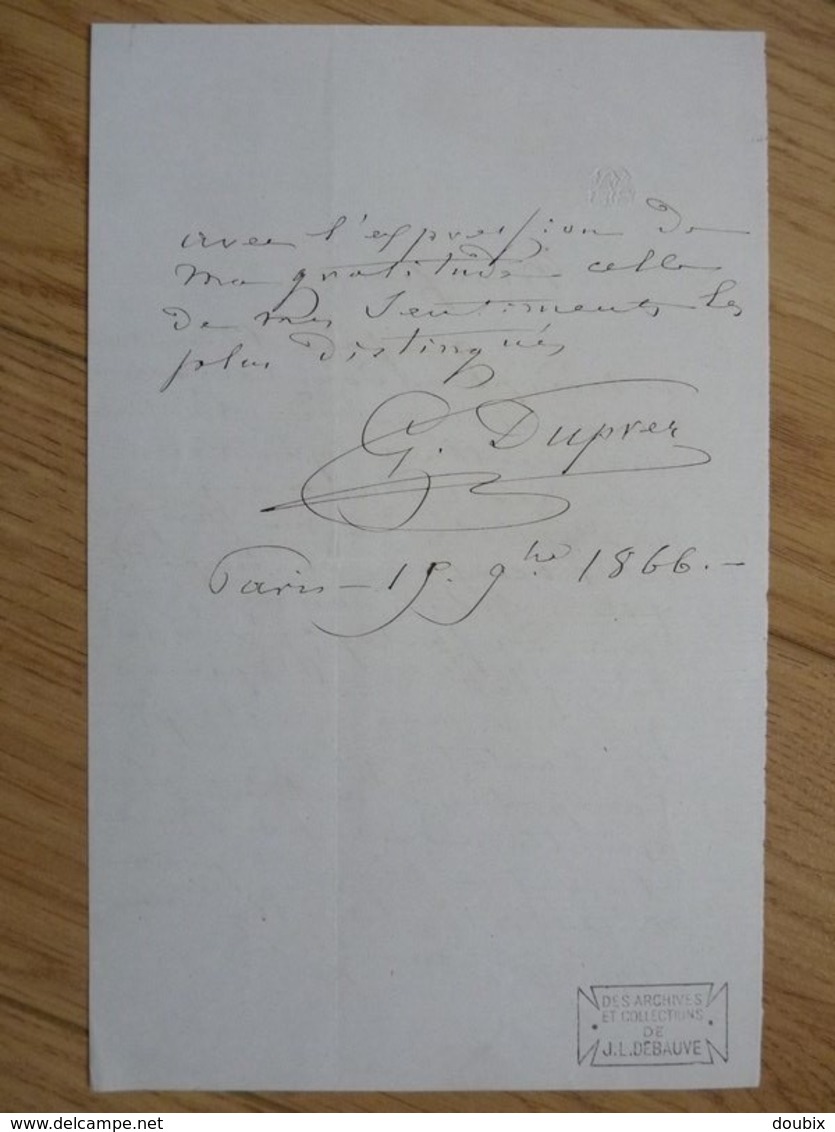 avec l'expression de
ma gratitude celle
de mes Sentiments les
plus distingués
G. Duprez
Paris - 15. 9bre 1866. -
DES ARCHIVES
ET COLLECTIONS
DE
J.L. DEBAUVE
www.delcampe.net
doubix